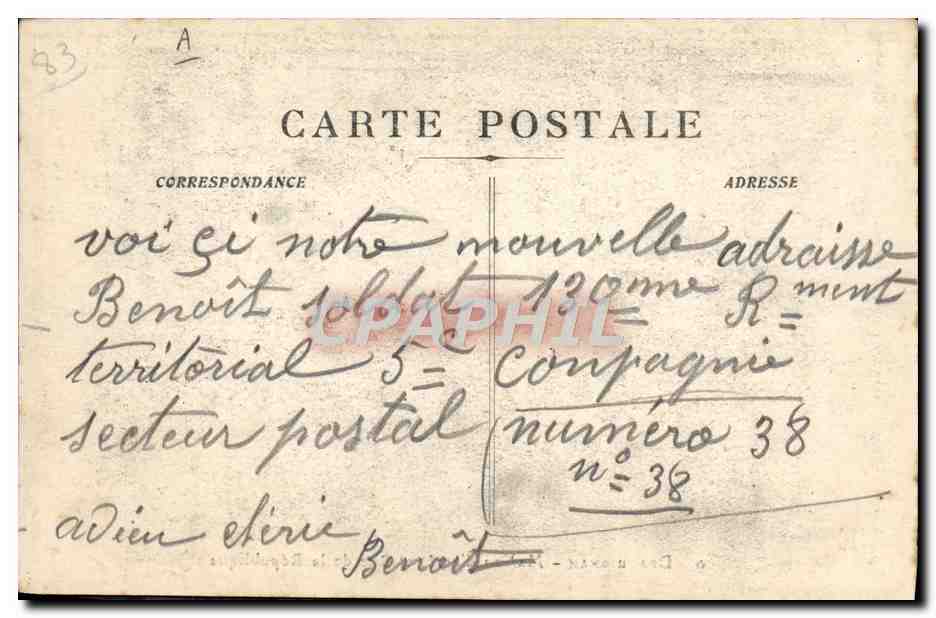 83
A
CARTE POSTALE
CORRESPONDANCE
ADRESSE
voi çi notre nouvelle adraisse
Benoît soldat 130eme Rment
territorial 5e Conpagnie
secteur postal numéro 38
nº 38
adieu
Benoît
CPAPHIL
de la République